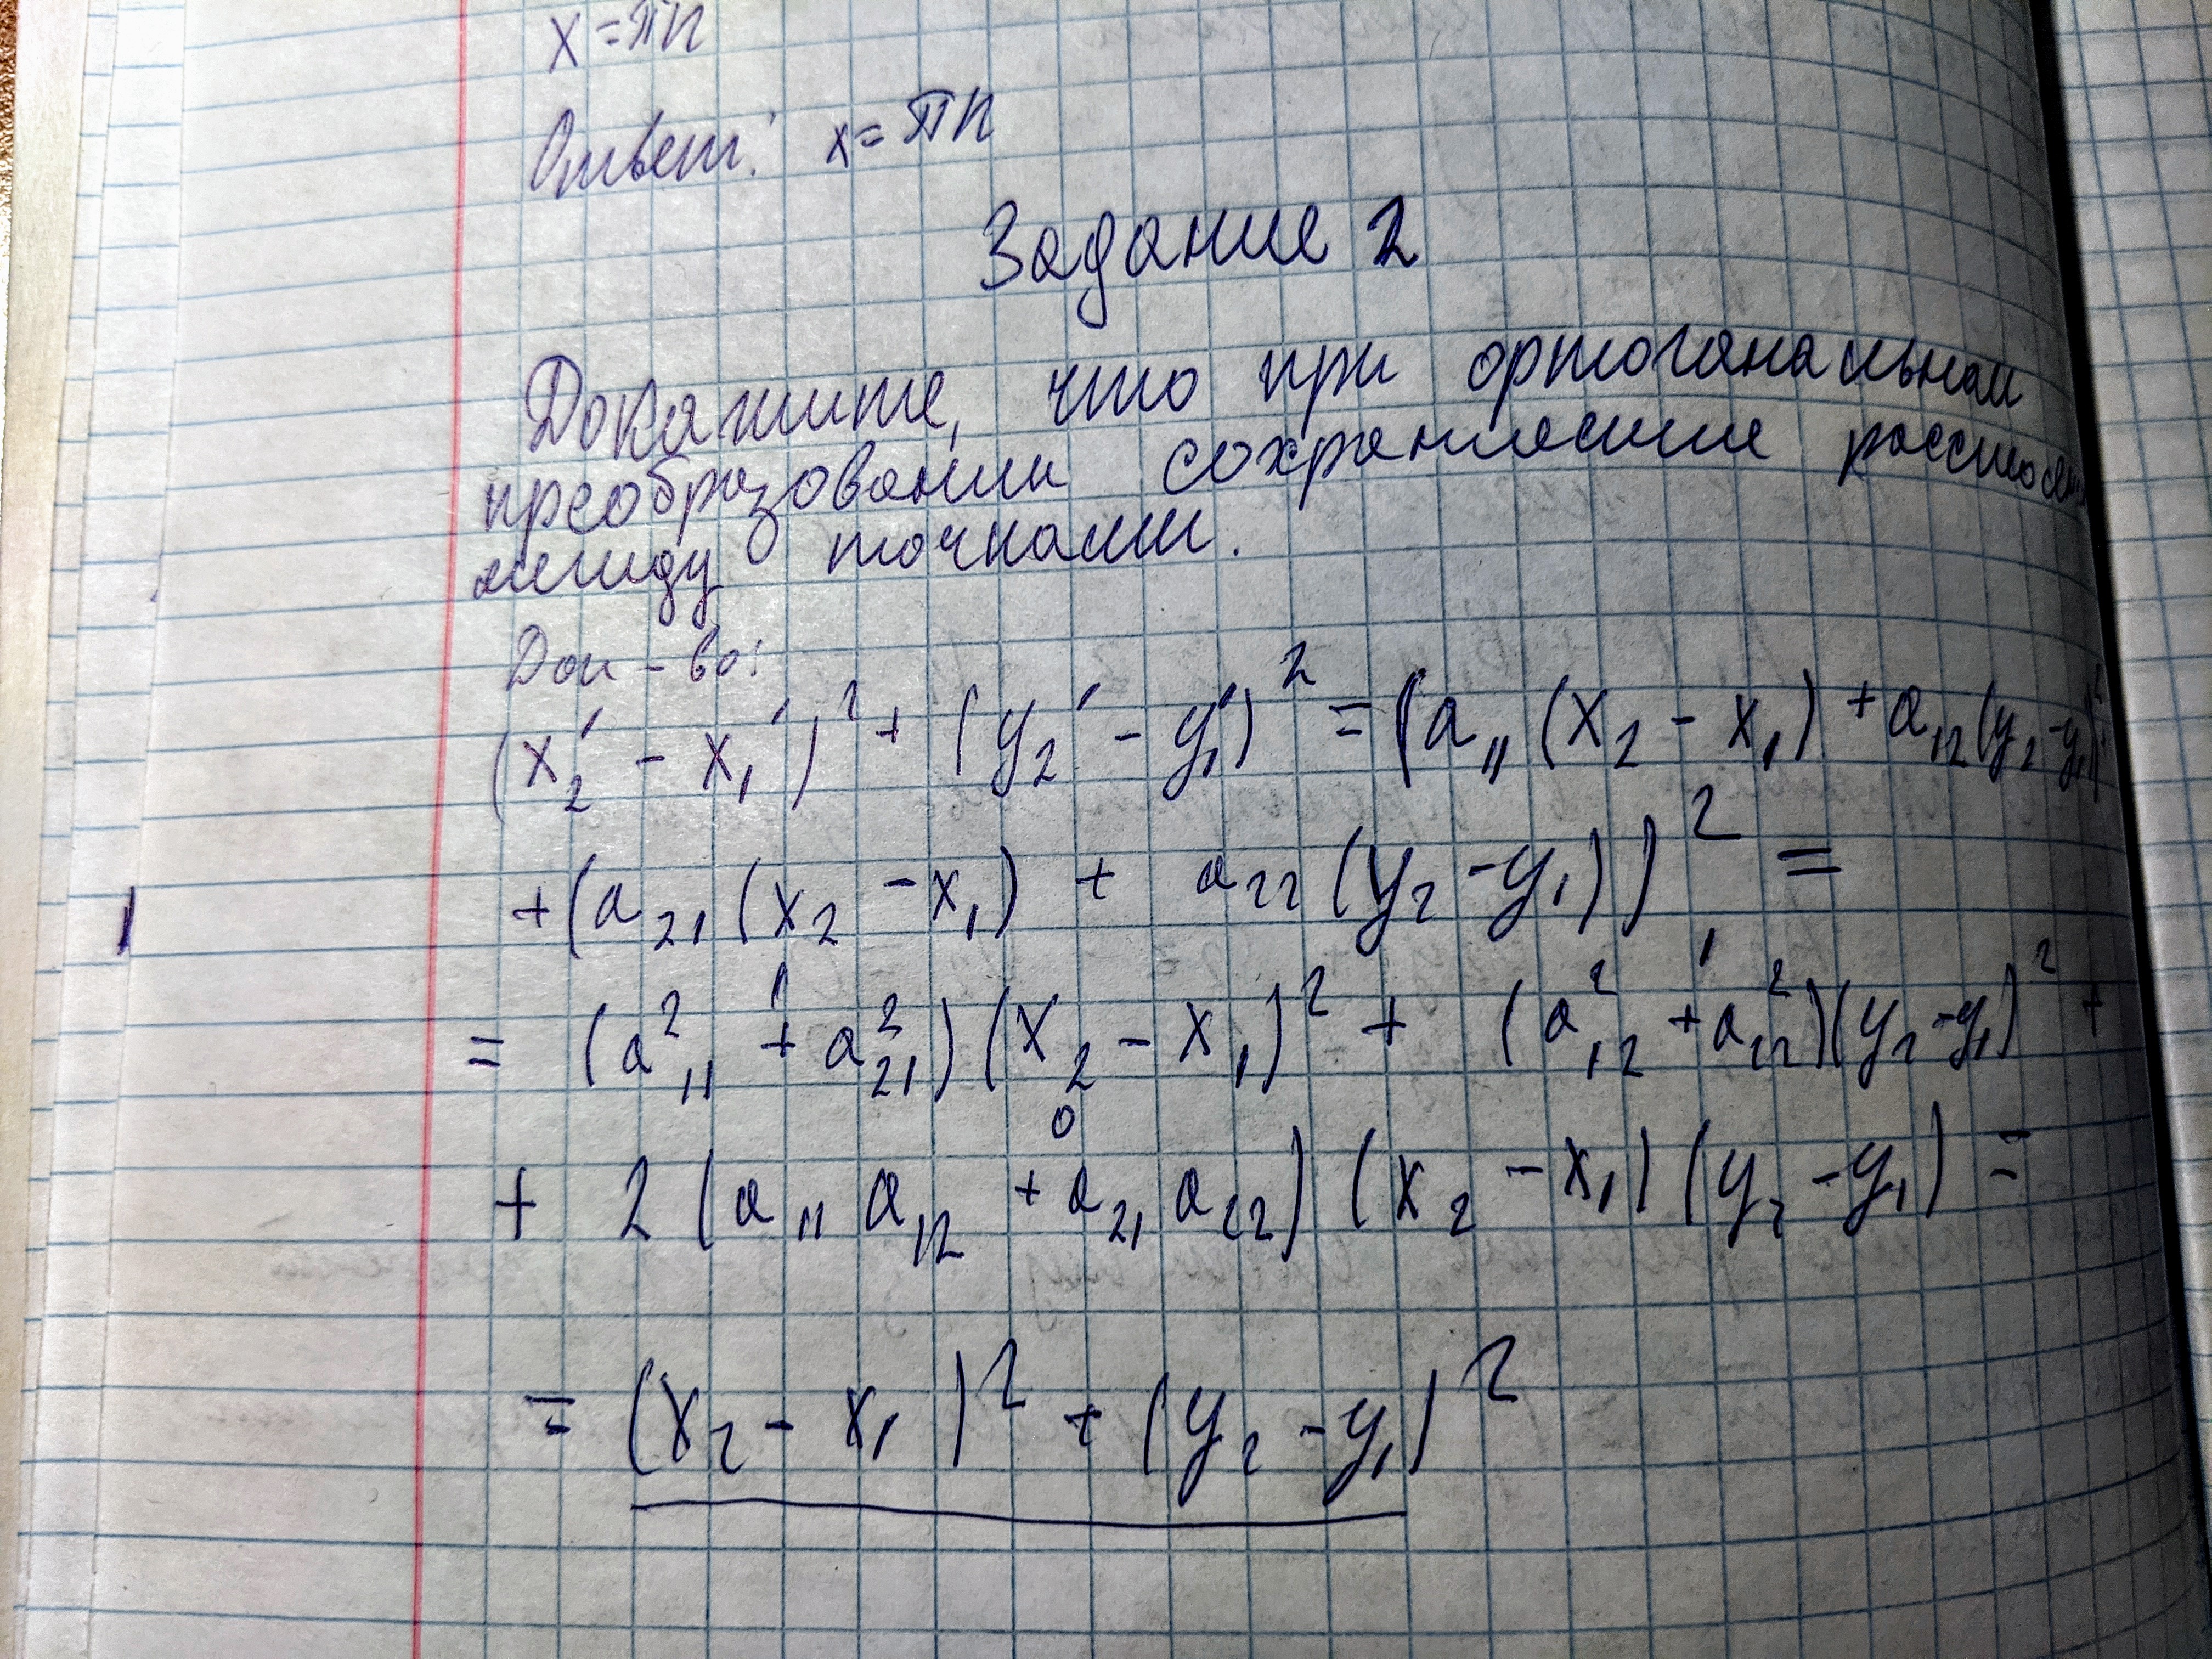 x = πn
Ответ: x = πn
Задание 2
Докажите, что при ортогональном
преобразовании сохраняется расстояние
между точками.
Док-во:
(x₂' - x₁')² + (y₂' - y₁')² = (a₁₁(x₂ - x₁) + a₁₂(y₂ - y₁))² +
+ (a₂₁(x₂ - x₁) + a₂₂(y₂ - y₁))² =
1 1
= (a₁₁² + a₂₁²)(x₂ - x₁)² + (a₁₂² + a₂₂²)(y₂ - y₁)² +
0
+ 2(a₁₁a₁₂ + a₂₁a₂₂)(x₂ - x₁)(y₂ - y₁) =
= (x₂ - x₁)² + (y₂ - y₁)²